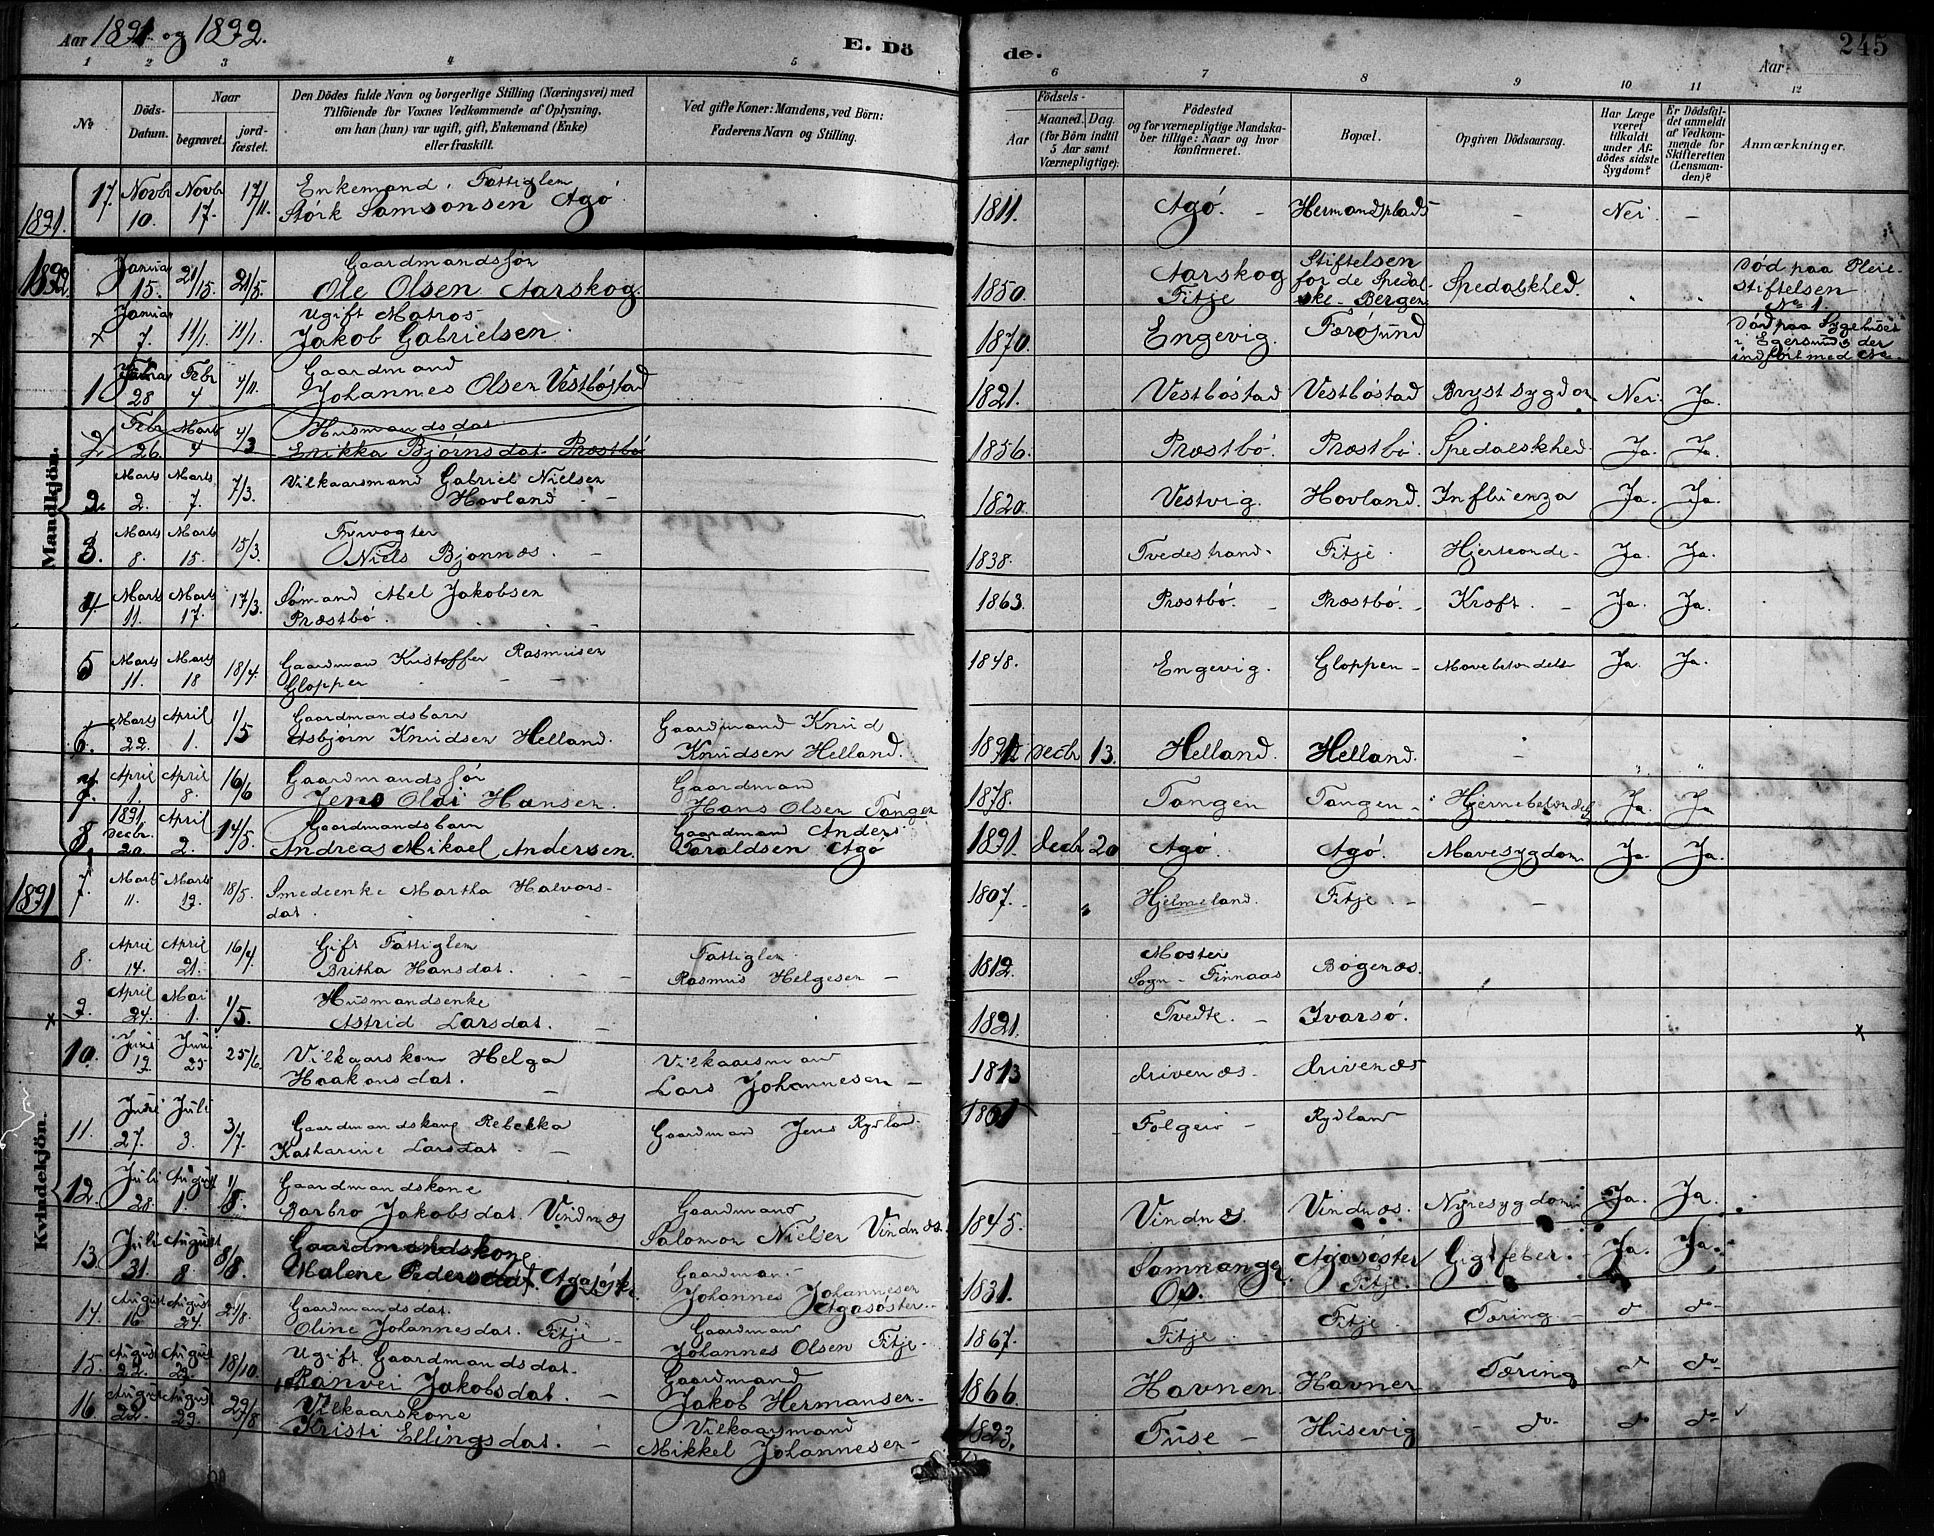 Aar 1891 og 1892.
E. Dö
de.
Aar
245
1 2 3 4 5 6 7 8 9 10 11 12
No
Döds-Datum.
Naar
begravet.
jordfæstet.
Den Dödes fulde Navn og borgerlige Stilling (Næringsvei) med
Tilföiende for Voxnes Vedkommende af Oplysning,
om han (hun) var ugift, gift, Enkemand (Enke)
eller fraskilt.
Ved gifte Koner: Mandens, ved Börn:
Faderens Navn og Stilling.
Födsels-
Aar
Maaned. Dag.
(for Börn indtil
5 Aar samt
Værnepligtige).
Födested
og for værnepligtige Mandska-
ber tillige: Naar og hvor
konfirmeret.
Bopæl.
Opgiven Dödsaarsag.
Har Læge
været
tilkaldt
under Af-
dödes sidste
Sygdom?
Er Dödsfal-
det anmeldt
af Vedkom-
mende for
Skifteretten
(Lensman-
den)?
Anmærkninger.
Mandkjön.
1891.
17. Novbr 10. Novbr 17. 17/11. Enkemand, Fattiglem
Störk Samsonsen Agö. 1811. Agö. – Hermandsplads – Nei. –
1892.
Januar 15. 21/5. Gaardmandssön
Ole Olsen Aarskog. 1850. Aarskog Fitje Stiftelsen for de Spedalske - Bergen Spedalskhed. " " Död paa Pleie-
stiftelsen
No 1
Januar 7. 11/1. 11/1. Ugift Matros
Jakob Gabrielsen. 1870. Engevig. Færösund Död paa Sygehuset
i Egersund
1 28 Febr 4 4/11. Gaardmand
Johannes Olsen Vestböstad 1821. Vestböstad Vestböstad Brystsygdom Nei. Ja.
2 Febr 26. Marts 4 4/3 Husmandsdat.
Erikka Björnsdat. Præstbö 1856. Præstbö. Præstbö. Spedalskhed. Ja. Ja.
2. Marts 2. Marts 7. 7/3. Vilkaarsmand Gabriel Nielsen
Hovland. 1820. Vestvig. Hovland. Influenza Ja. Ja.
3. Marts 8. Marts 15. 15/3. Fyrvogter
Niels Bjönnæs. – 1838. Tvedestrand. Fitje. Hjerteonde. Ja. Ja.
4 Marts 11. Marts 17. 17/3. Sömand Abel Jakobsen
Præstbö. 1863. Præstbö. – Præstbö. – Kræft. – Ja. Ja.
5 Marts 11. Marts 18 18/4. Gaardmand Kristoffer Rasmusen
Gloppen – 1848. Engevig. Gloppen – Mavebetændelse Ja. Ja.
6. Marts 22. April 1. 1/5 Gaardmandsbarn
Asbjörn Knudsen Helland. Gaardmand Knud
Knudsen Helland. Decbr 13. Helland. Helland. – " "
7. April 1. April 8. 16/6 Gaardmandssön
Jens Olai Hansen. Gaardmand
Hans Olsen Tangen 1878. Tangen Tangen – Hjernebetændelse Ja. Ja
8. 1891. Decbr. 20. April 2. 14/5. Gaardmandsbarn
Andreas Mikael Andersen. Gaardmand Anders
Taraldsen Agö 1891. Decbr 20 Agö. Agö. Mavesygdom Ja. Ja.
1891
Kvindekjön.
7. Marts 11. Marts 19. 18/5. Smedeenke Martha Halvors-
dat. 1807. Hjelmeland. Fitje. – –
8. April 14. April 21. 16/4. Gift Fattiglem
Britha Hansdat. Fattiglem.
Rasmus Helgesen – 1812. Moster
Sogn - Finnaas Bögenæs.
9. April 24. Mai 1. 1/5. Husmandsenke
Astrid Larsdat. – 1821. Tvedte. – Ivarsö.
10. Juni 19. Juni 25 25/6. Vilkaarskone Helga
Haakonsdat. – Vilkaarsmand
Lars Johannesen – 1813 Drivenæs. Drivenæs
11. Juni 27. Juli 3. 3/7. Gaardmandskone Rebekka
Katharine Larsdat. – Gaardmand Jens Rydland Folgerö – Rydland
12. Juli 28. August 1. 1/8. Gaardmandskone
Barbro Jakobsdat. Vindnæs Gaardmand
Salomon Nielsen Vindnæs. 1845. Vindnæs. Vindnæs. Nyresygdom Ja. Ja.
13. Juli 31. August 8 8/8. Gaardmandskone
Malene Pedersdat. Agasöster. Gaardman.
Johannes Johannesen
Agasöster. 1831. Samnanger
Os. Agasöster
Fitje. Gigtfeber. Ja. Ja.
14. August 16 August 24. 21/8. Gaardmandsdat.
Oline Johannesdat. Fitje – Gaardmand
Johannes Olsen Fitje. 1867. Fitje. Fitje. Tæring – do do
15. August 22. August 29. 18/10. Ugift. Gaardmandsdat.
Ranvei Jakobsdat. – Gaardmand
Jakob Hermansen – 1866. Havnen. Havnen Tæring do do
16. August 22. August 29. 29/8 Vilkaarskone
Kristi Ellingsdat. – Vilkaarsmand
Mikkel Johannesen – 1823. Fuse – Husevig – do – do do